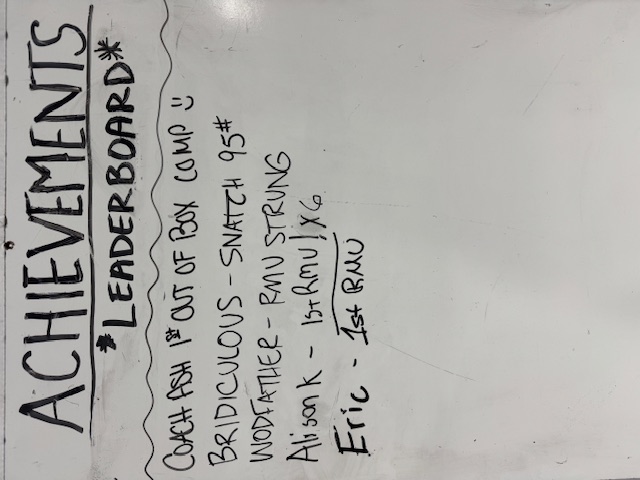 ACHIEVEMENTS
*LEADERBOARD*
COACH ASH 1st OUT OF BOX COMP
BRIDICULOUS - SNATCH 95#
WODFATHER - RMU STRUNG
Alison K - 1st RMU! X6
Eric - 1st RMU